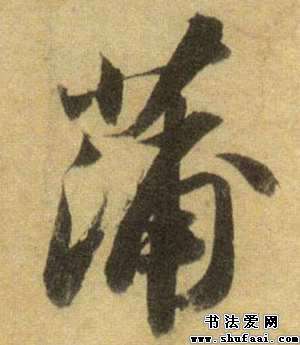 蒲
书法爱网
www.shufaai.com